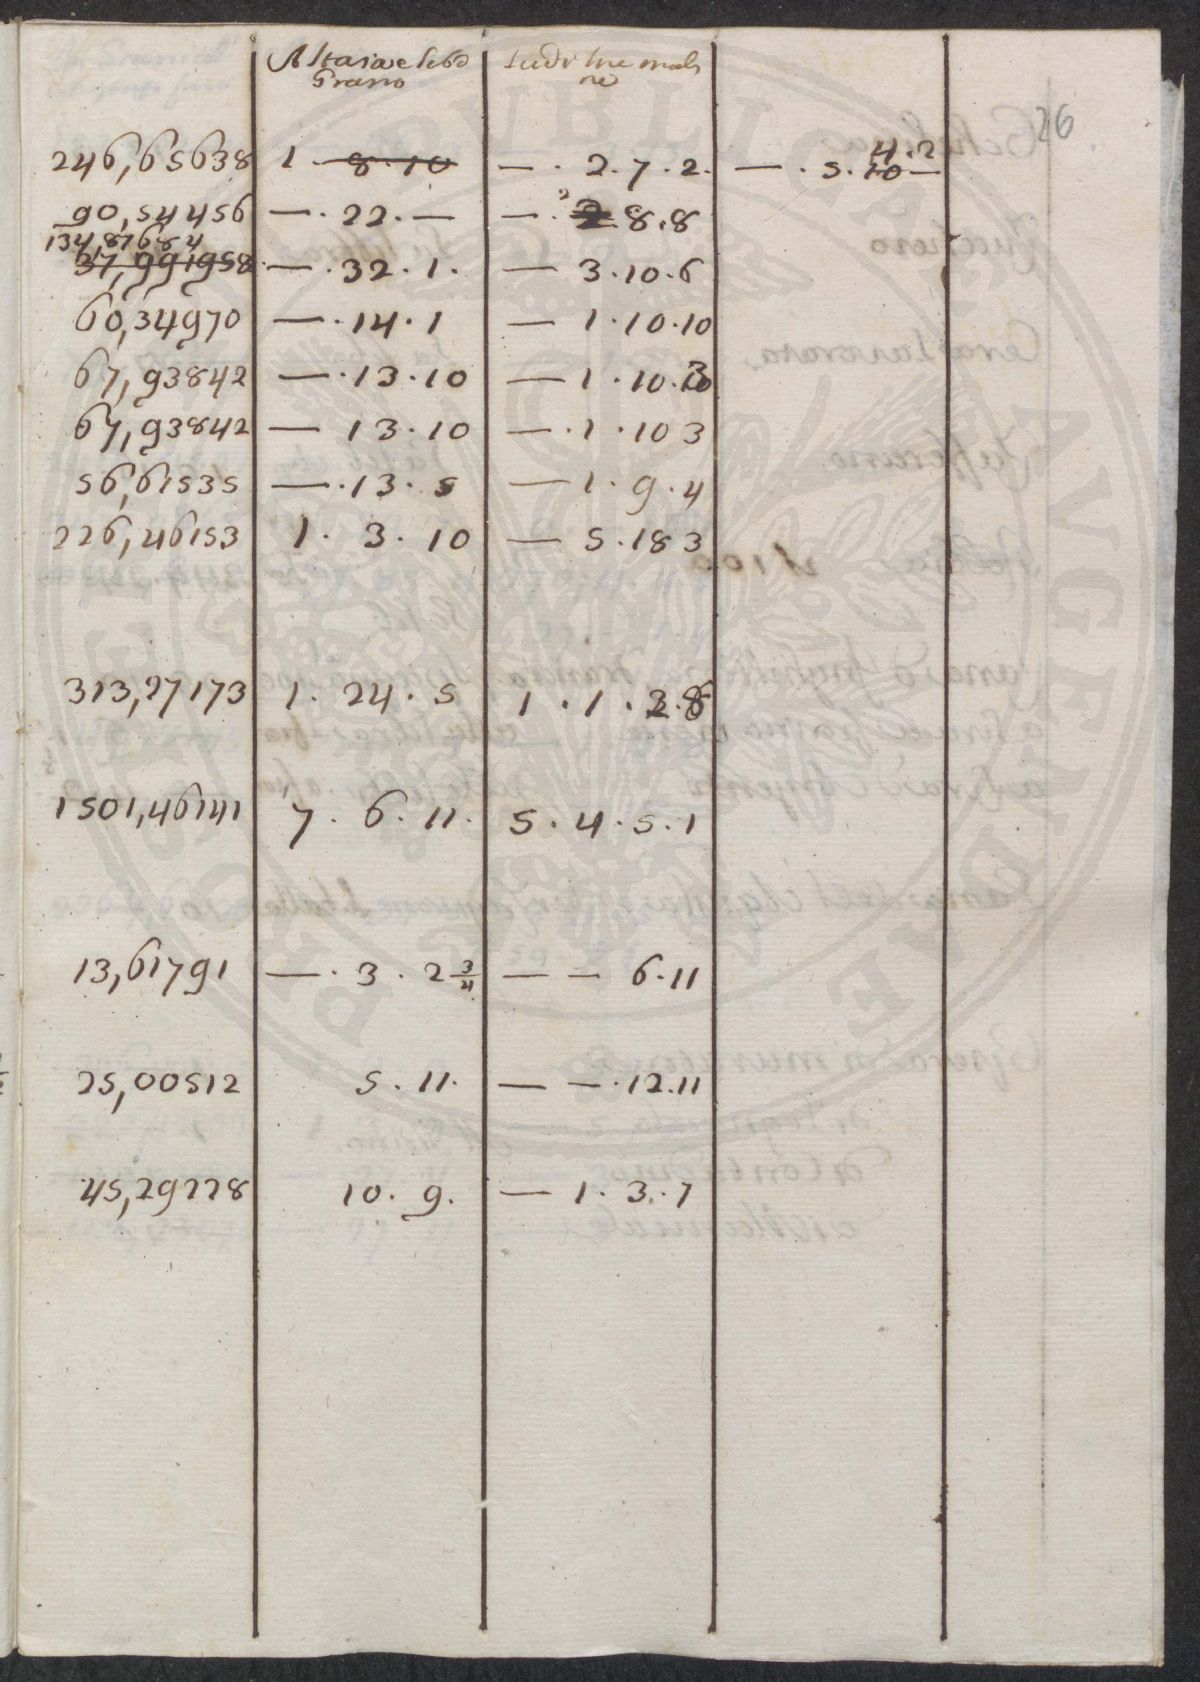 26
Grano
246,65638 1 8.10 — . 2.7.2. — . 5.10 — 4.2
90,54456 — . 22. — — . 2 8.8
134,87684
37,991958 — . 32.1. — 3.10.6
60,34970 — . 14.1 — 1.10.10
67,93842 — . 13.10 — 1.10.3
67,93842 — 13.10 — . 1.10 3
56,61535 — . 13.5 — 1.9.4
226,46153 1. 3. 10 — 5.18 3
313,27173 1. 24. 5 1.1.2.8
1501,46141 7. 6. 11. 5.4.5.1
13,61791 — . 3. 2 3/4 — — 6.11
25,00512 5.11. — — . 12.11
45,29228 10. 9. — 1.3.7